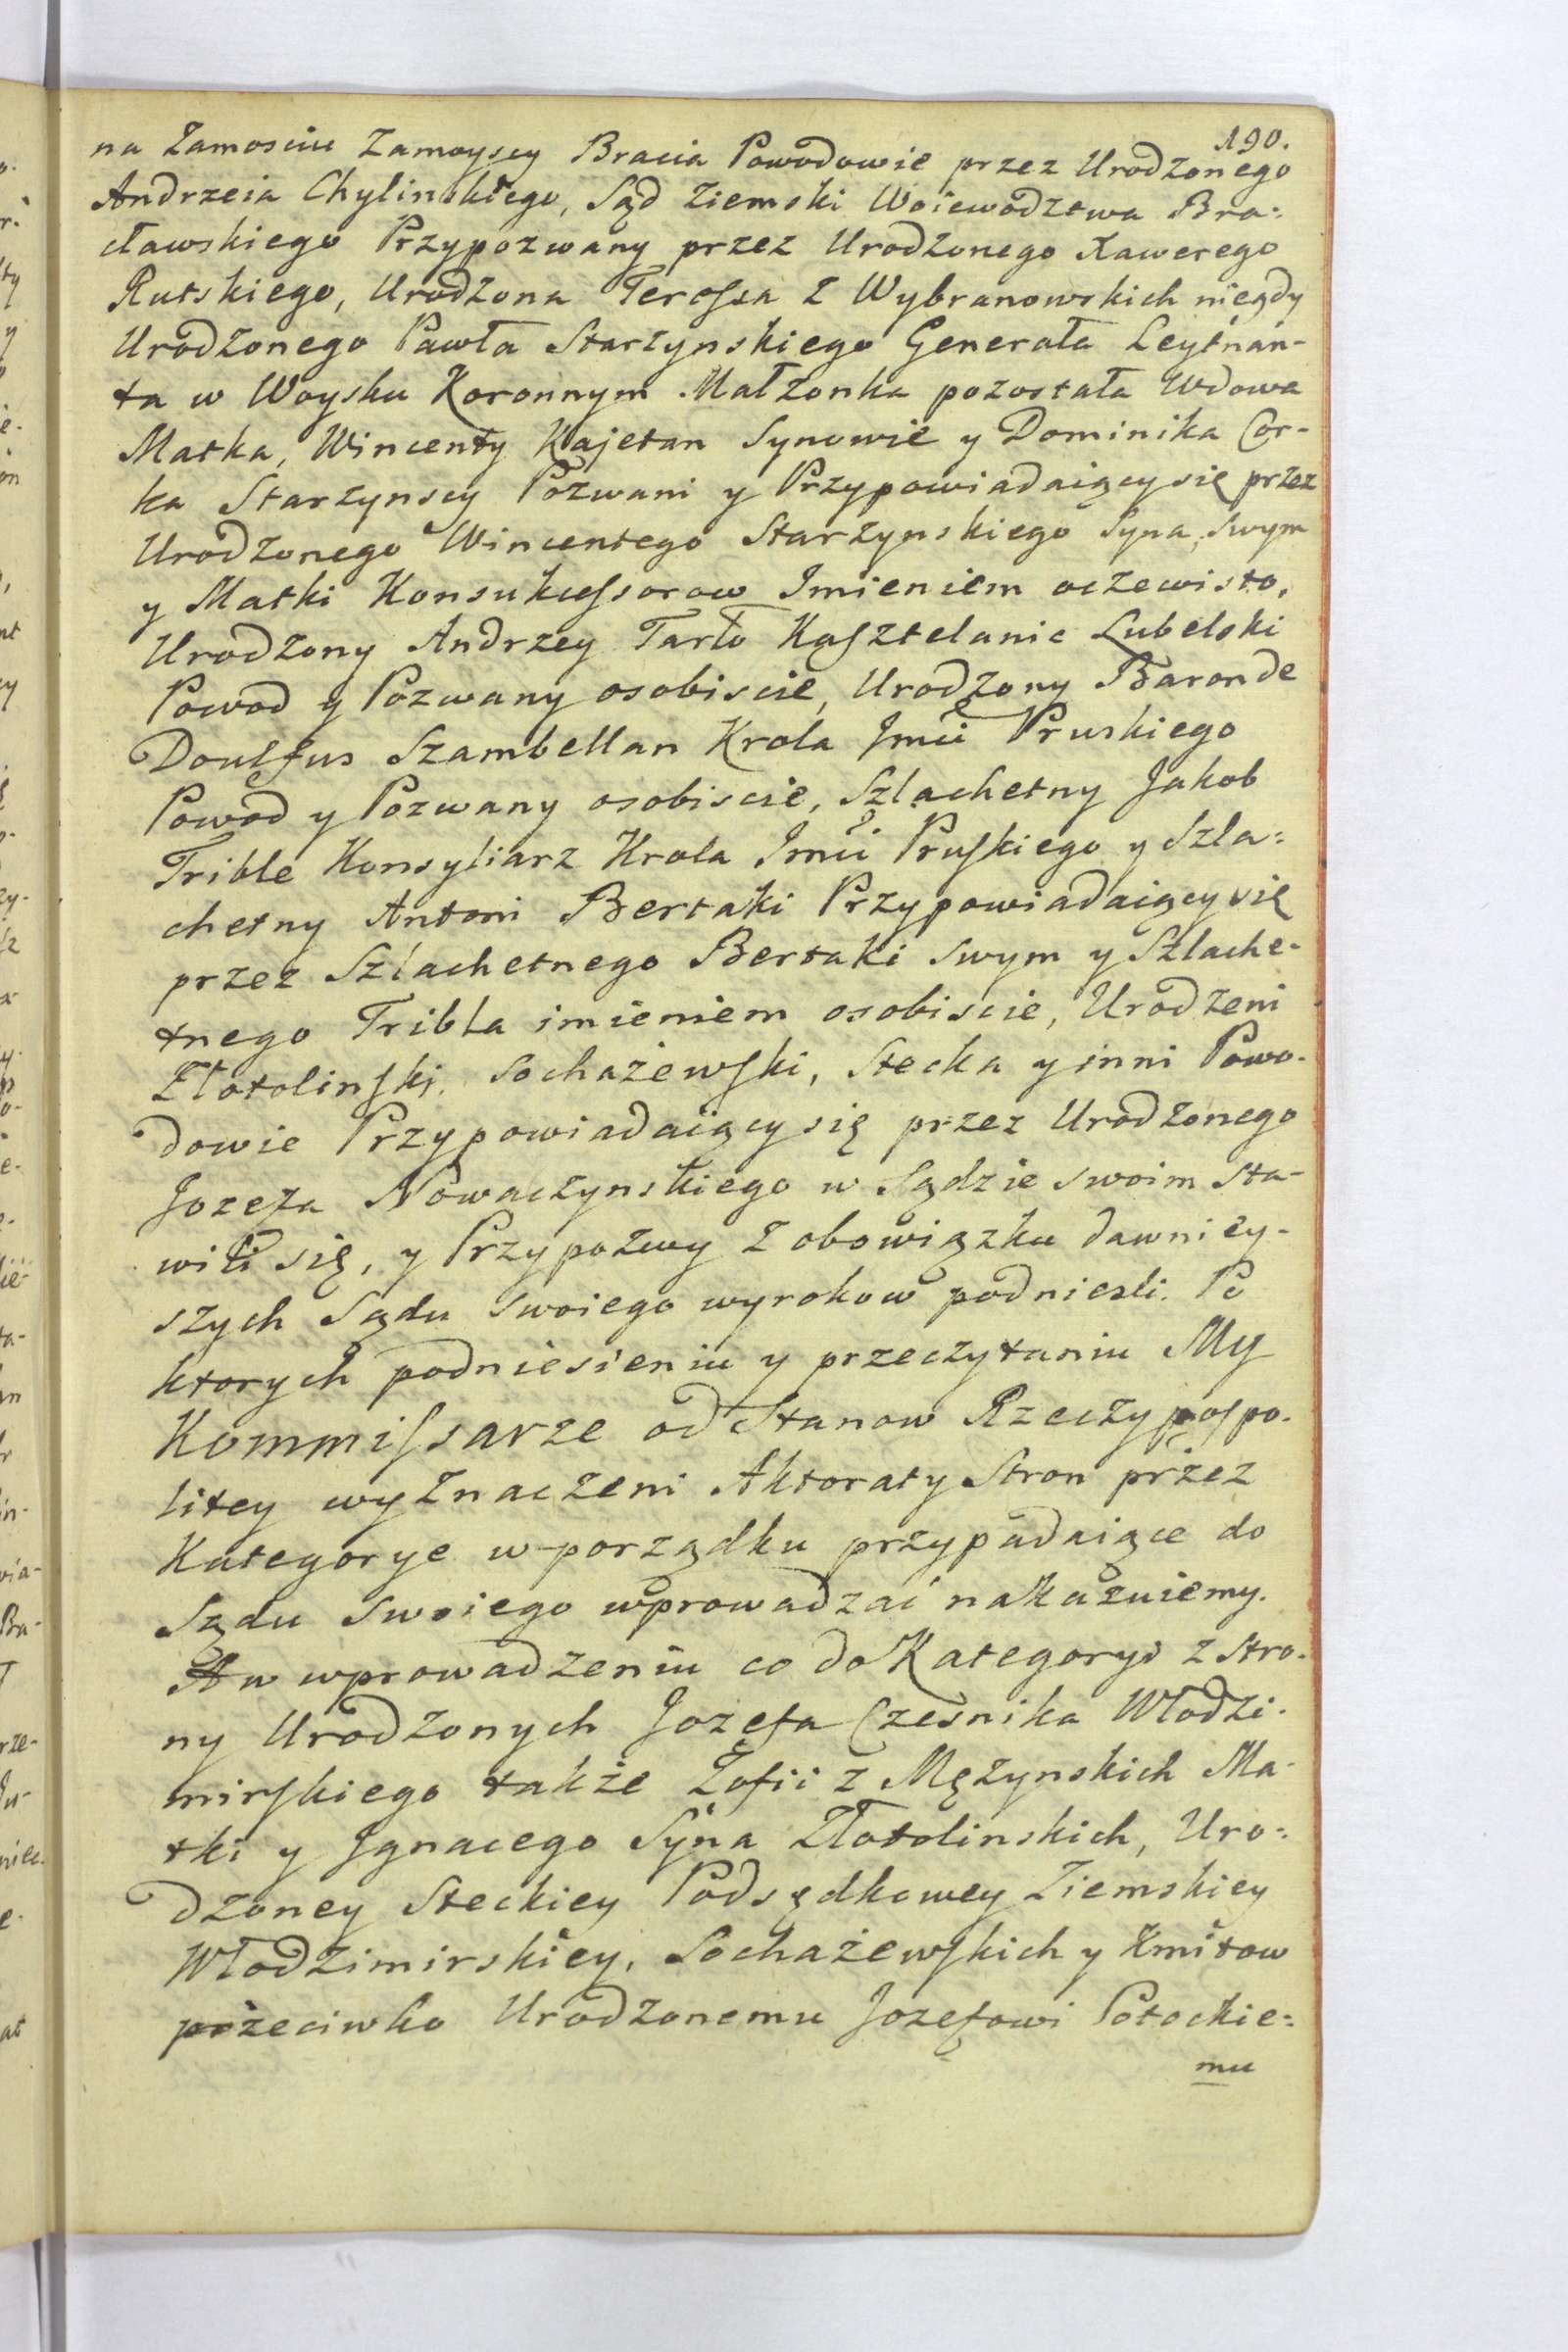 190.
na Zamosciu Zamoyscy Bracia Powodowie przez Urodzonego
Andrzeia Chylinskiego, Sąd Ziemski Woiewodztwa Bra:
cławskiego Przypozwany przez Urodzonego Xawerego
Rutskiego, Urodzona Teressa z Wybranowskich niegdy
Urodzonego Pawła Starzynskiego Generała Leytnan-
ta w Woysku Koronnym Małzonka pozostała Wdowa
Matka, Wincenty Kajetan Synowie y Dominika Cor-
ka Starzynscy Pozwani y Przypowiadaiący się przez
Urodzonego Wincentego Starzynskiego Syna, Swym
y Matki Konsukcessorow Imieniem oczewisto,
Urodzony Andrzey Tarło Kasztelanic Lubelski
Powod y Pozwany osobiscie, Urodzony Baron de
Doulfus Szambellan Krola Jmci Pruskiego
Powod y Pozwany osobiscie, Szlachetny Jakob
Trible Konsyliarz Krola Jmci Pruskiego y Szla:
chetny Antoni Bertaki Przypowiadaiący się
przez Szlachetnego Bertaki swym y Szlache-
tnego Tribla imieniem osobiscie, Urodzeni
Złotolinski, Sochażewski, Stecka y inni Powo-
dowie Przypowiadaiący się przez Urodzonego
Jozefa Nowaczynskiego w Sądzie swoim sta-
wili się, y Przypozwy z obowiązku dawniey-
szych Sądu swoiego wyrokow podniesli. Po
ktorych podniesieniu y przeczytaniu My
Kommissarze od Stanow Rzeczypospo-
litey wyznaczeni Aktoraty Stron przez
Kategorye w porządku przypadaiące do
Sądu swoiego wprowadzać nakazuiemy.
A w wprowadzeniu co do Kategoryi z stro-
ny Urodzonych Jozefa Czesnika Włodzi-
mirskiego także Zofii z Mężynskich Ma-
tki y Jgnacego Syna Złotolinskich, Uro:
dzoney Steckiey Podsędkowey Ziemskiey
Włodzimirskiey, Sochażewskich y Kmitow
przeciwko Urodzonemu Jozefowi Potockie:
mu